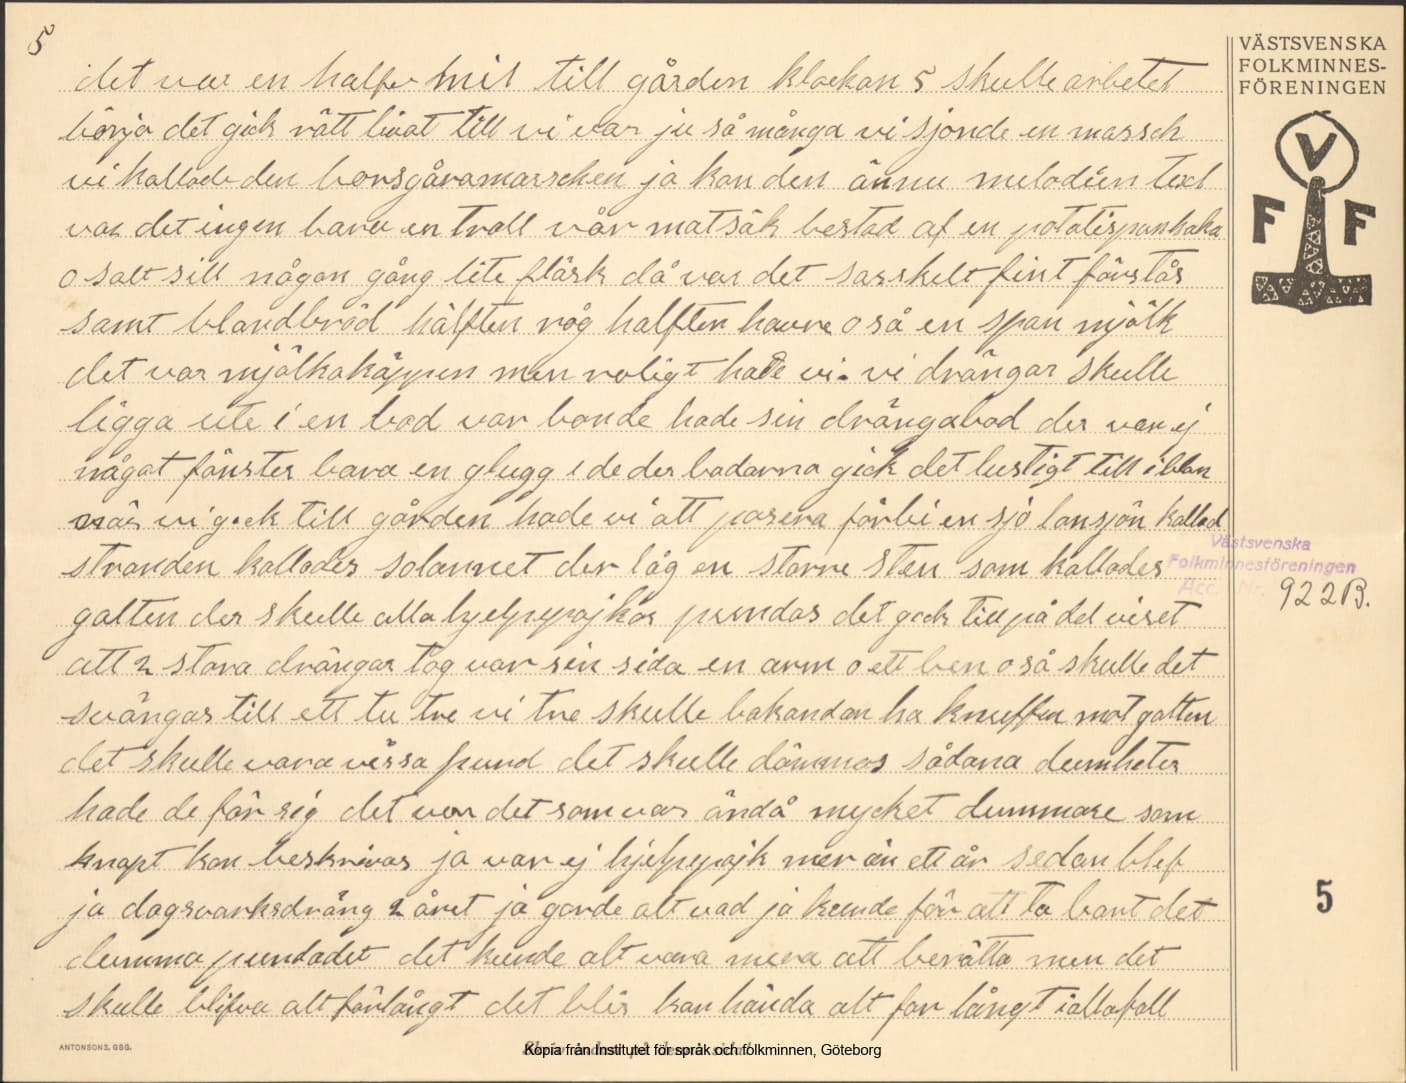 5
VÄSTSVENSKA
FOLKMINNES-
FÖRENINGEN
V
F F
det var en halfv mil till gården klockan 5 skulle arbetet
börja det gick rätt livat till vi var ju så många vi sjonde en marsch
vi kallade den borsgåramarschen ja kan den ännu melodien text
var det ingen bara en trall vår matsäk bestod af en potatispankaka
o salt sill någon gång lite fläsk då var det sarskelt fint förstås
samt blandbröd hälften råg halften havre o så en span mjölk
det var mjölkakäppen men roligt hade vi. vi drängar skulle
ligga ute i en bod var bonde hade sin drängabod der var ej
något fönster bara en glugg i de der bodarna gick det lustigt till iblan
när vi gick till gården hade vi att pasera förbi en sjö lonsjön kallad
stranden kallades solannet der låg en storre sten som kallades
galten der skulle alla hjelppojkar pundas det gick till på det viset
att 2 stora drängar tog var sin sida en arm o ett ben o så skulle det
svängas till ett tu tre vi tre skulle bakandan ha knuffen mot galten
det skulle vara vissa pund det skulle dömmas sådana dumheter
hade de för sig det var det som var ändå mycket dummare som
knapt kan beskrivas ja var ej hjelppojk mer än ett år sedan blef
ja dagsvarksdräng 2 året ja gorde alt vad ja kunde för att ta bort det
dumma pundadet det kunde alt vara mera att berätta men det
skulle blifva alt förlångt det blir kanhända alt for långt iallafall
Västsvenska
Folkminnesföreningen
Acc. Nr. 922B.
5
ANTONSONS, GBG.
Kopia från Institutet för språk och folkminnen, Göteborg